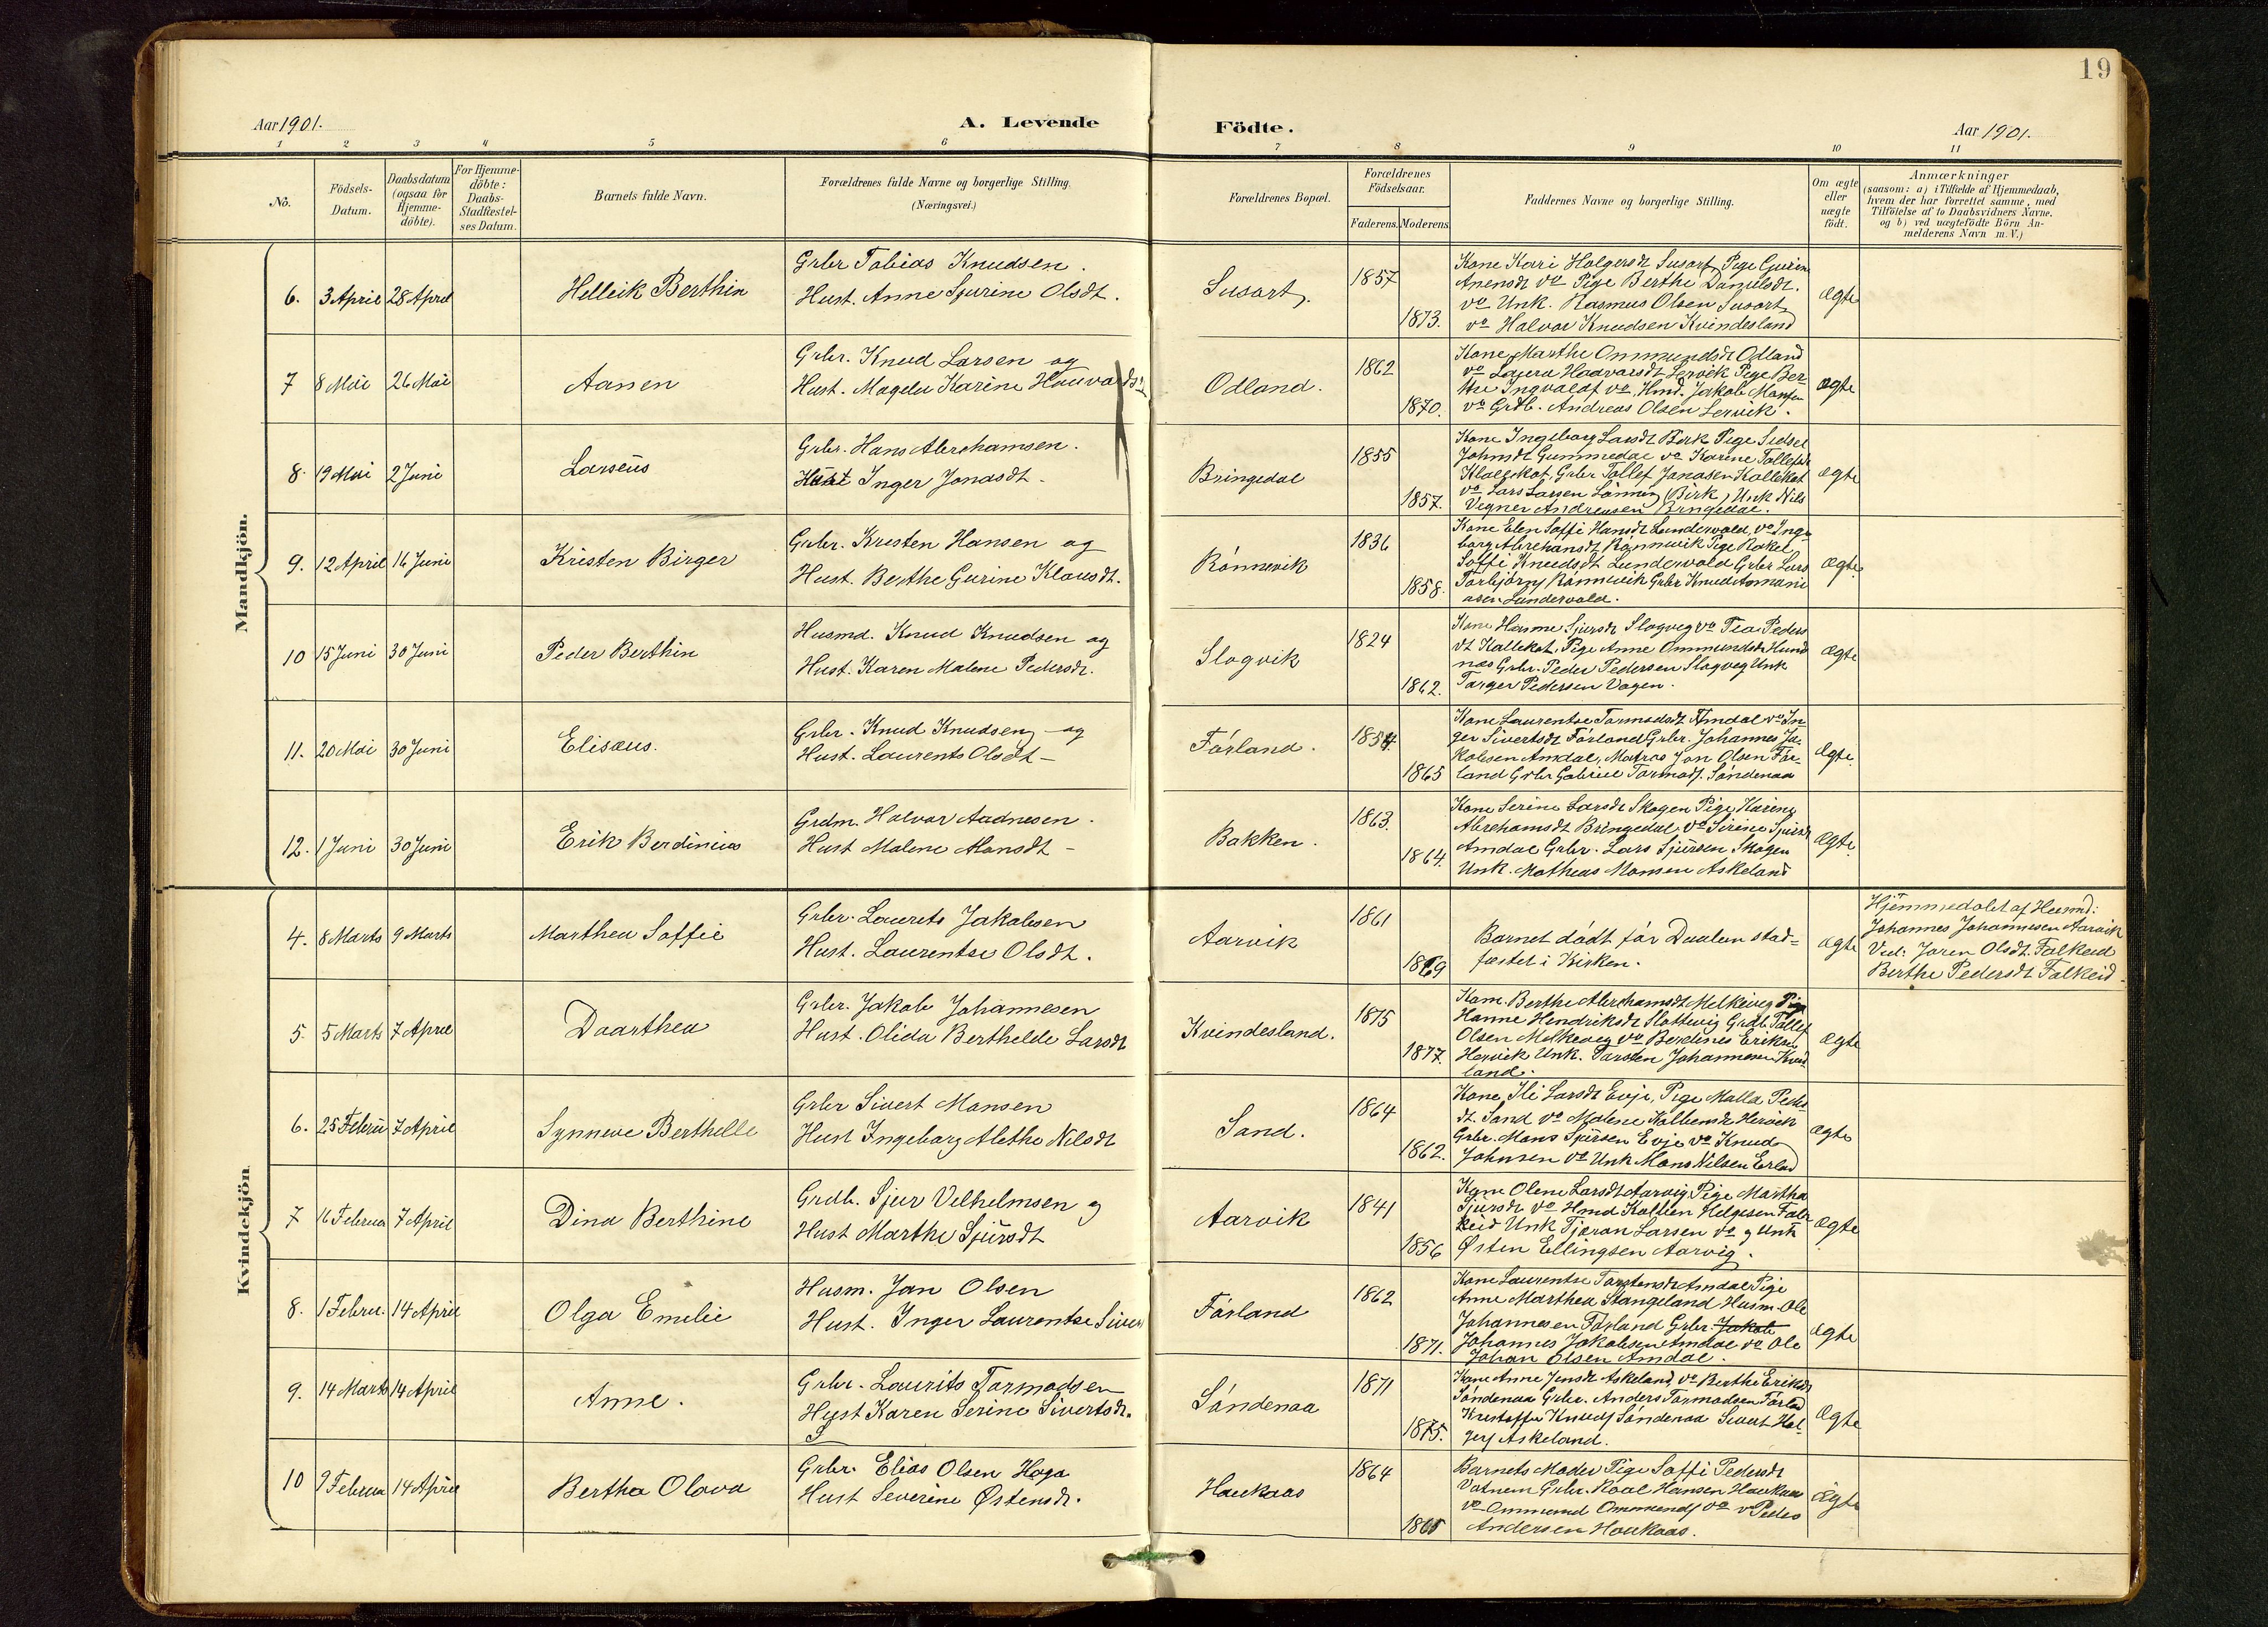 19
Aar 1901.
A. Levende
Födte.
Aar 1901.
1 2 3 4 5 6 7 8 9 10 11
No.
Födsels-Datum.
Daabsdatum (ogsaa for Hjemme-döbte).
For Hjemme-döbte: Daabs-Stadfæstel-ses Datum.
Barnets fulde Navn.
Forældrenes fulde Navne og borgerlige Stilling.
(Næringsvei.)
Forældrenes Bopæl.
Forældrenes Födselsaar.
Faderens. Moderens.
Faddernes Navne og borgerlige Stilling.
Om ægte eller uægte födt.
Anmærkninger
(saasom: a) i Tilfælde af Hjemmedaab,
hvem der har forrettet samme, med
Tilföielse af to Daabsvidners Navne,
og b) ved uægtefödte Börn An-
melderens Navn m. V.)
Mandkjön.
6. 3 April 28 April Helleik Berthin
Grbr Tobias Knudsen.
Hust. Anne Gurine Olsdt.
Susort. 1857 1873.
Kone Kari Holgersdt Susort, Pige Gurine
Anensdt vo Pige Berthe Danielsdt.
vo Unk. Rasmus Olsen Susort
vo Halvor Knudsen Kvindesland
Ægte
7 8 Mai 26 Mai Aanen
Grbr. Knud Larsen og
Hust. Magela Karine Hauvardsd
Odland. 1862 1870.
Kone Marthe Ommundsdt Odland
vo Laura Haavarsdt Lervik Pige Ber-
the Ingvalds vo. Hmd. Jakob Mons
vo Grdb. Andreas Olsen Lervik.
Ægte
8. 19 Mai 2 Juni Larseus
Grbr. Hans Abrahamsen.
Hust Inger Jonasdt.
Bringedal 1855 1857.
Kone Ingeborg Larsdt Birk Pige Sidsel
Johnsdt Gummedal vo Karine Tollefsdt
Kallekot, Grbr Tollef Jonasen Kallekot
vo Lars Larsen Lönning (Birk) Unk Nils
Vegner Andreasen Bringedal.
Ægte
9. 12 April 16 Juni Kristen Birger
Grbr. Kristen Hansen og
Hust. Berthe Gurine Klausdt.
Rönnevik 1836 1858.
Kone Elen Soffi Hansdt Lundervold, vo Inge
borg Abrehamsdt Rönnevik Pige Rakel
Soffi Knudsdt Lundervold Grbr Lars
Torbjörns Rönnevik Grbr Knud
asen Lundervold.
Ægte
10 15 Juni 30 Juni Peder Berthin
Husmd. Knud Knudsen og
Hust. Karen Malene Pedersdt.
Slogvik 1824 1862.
Kone Hanne Sjursdt Slogveg vo Tea Peders
dt Kallekot, Pige Anne Ommundsdt Hund
næs Grbr. Peder Pedersen Slogveg Unk
Torger Pedersen Vagen.
Ægte
11. 20 Mai 30 Juni Elisæus.
Grbr. Knud Knudsen og
Hust. Laurents Olsdt
Förland. 1854. 1865
Kone Laurentse Tormodsdt Amdal vo In-
ger Sivertsdt Förland Grbr. Johannes Ja-
kobsen Amdal, Matros Jon Olsen För-
land Grbr Gabriel Tormods. Söndenaa
Ægte
12. 1 Juni 30 Juni Erik Berdinius
Grdm. Halvor Aadnesen.
Hust Malene Monsdt
Bakken. 1863. 1864.
Kone Serine Larsdt Skogen Pige Karine
Abrehamsdt Bringedal, vo Sirine Sjursdt
Amdal Grbr. Lars Sjursen Skogen
Unk. Mathias Monsen Askeland
Ægte
Kvindekjön
4. 8 Marts 9 Marts Marthea Soffie
Grbr. Laurits Jakobsen
Hust. Laurentse Olsdt.
Aarvik 1861 1869
Barnet dödt för Daaben stad-
fæstet i Kirken.
Ægte
Hjemmedöbt af Husmd:
Johannes Johannesen Aarvik
Vid: Joren Olsdt. Falkeid
Berthe Pedersdt Falkeid
5. 5 Marts 7 April Daarthea
Grbr. Jakob Johannesen
Hust. Olida Berthelde Larsdt
Kvindesland. 1875 1877.
Kone. Berthe Abrehamsdt Melkeveg Pige
Hanne Hendriksdt Slottevig Grdb. Tollef
Olsen Melkeveg vo Berdines Eriksen
Hervik Unk. Torsten Johannesen Kvind
land.
Ægte
6. 25 Februa 7 April Synneve Berthelle
Grbr Sivert Monsen
Hust Ingeborg Alethe Nilsdt
Sand. 1864 1862.
Kone Ili Larsdt Evje, Pige Malla Peder
dt. Sand vo Malene Kolbensdt Hervik
Grbr. Mons Sjursen Evje vo Knud
Johnsen vo Unk Mons Nilsen Erland
Ægte
7 16 Februa 7 April Dina Berthine
Grdb. Sjur Velhelmsen og
Hust Marthe Sjursdt
Aarvik 1841 1856
Kone Olene Larsdt Aarvig, Pige Martha
Sjursdt vo Hmd Kolben Helgesen Falk
keid Unk Tjøran Larsen vo og Unk
Østen Ellingsen Aarvig.
Ægte
8. 1 Februa. 14 April Olga Emelie
Husm. Jan Olsen
Hust. Inger Laurentse Siver
Förland 1862 1871.
Kone Laurentse Torstensdt Amdal Pige
Anne Marthea Stangeland Husm. Ole
Johannesen Förland Grbr. Jakob
Johannes Jakobsen Amdal vo Ole
Johan Olsen Amdal.
Ægte
9. 14 Marts 14 April Anne.
Grbr. Laurits Tormodsen
Hust Karen Serine Sivertsdt.
Söndenaa 1871 1875.
Kone Anne Jensdt Askeland, vo Berthe Eriksdt
Söndenaa Grbr. Anders Tormodsen Förland
Kristoffer Knuds Söndenaa Sivert Hol-
gers Askeland.
Ægte
10 9 Februa 14 April Bertha Olava
Grbr. Elias Olsen Haga
Hust Severine Østensdt.
Haukaas 1864 1865
Barnets Moder Pige Soffi Pedersdt
Vatnem Grbr. Roal Hansen Haukaas
vo Ommund Ommunds vo vo Peder
Andersen Haukaas.
Ægte